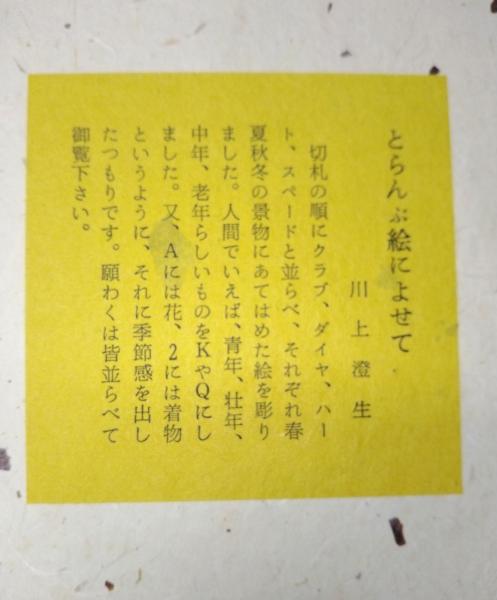 とらんぷ絵によせて
川上澄生
切札の順にクラブ、ダイヤ、ハー
ト、スペードと並らべ、それぞれ春
夏秋冬の景物にあてはめた絵を彫り
ました。人間でいえば、青年、壮年、
中年、老年らしいものをKやQにし
ました。又、Aには花、2には着物
というように、それに季節感を出し
たつもりです。願わくは皆並らべて
御覧下さい。